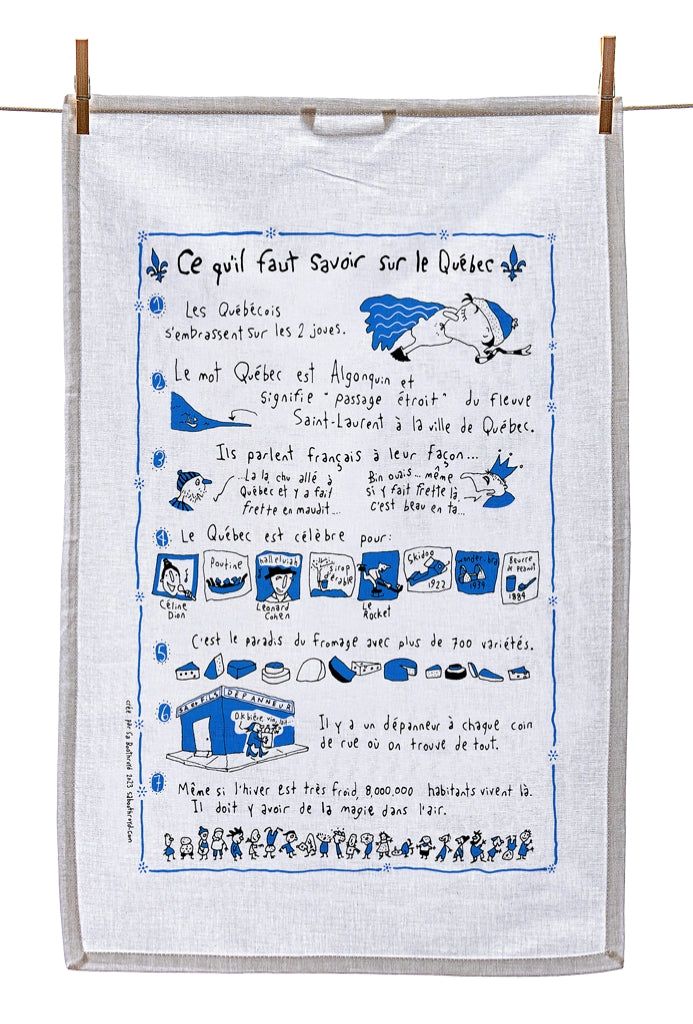 Ce qu'il faut savoir sur le Québec
1
Les Québécois
s'embrassent sur les 2 joues.
2
Le mot Québec est Algonquin et
signifie "passage étroit" du fleuve
Saint-Laurent à la ville de Québec.
3
Ils parlent français à leur façon...
...La la, chu allé à
Québec et y a fait
frette en maudit...
Bin ouais... même
si y fait frette là,
c'est beau en ta...
4
Le Québec est célèbre pour:
Céline
Dion
Poutine
halleluiah
Leonard
Cohen
sirop
d'érable
Le
Rocket
Skidoo
1922
wonder-bra
1939
Beurre
de Peanut
1884
5
C'est le paradis du fromage avec plus de 700 variétés.
6
SA et FILS DÉPANNEUR
OK bière, vin, lait...
Il y a un dépanneur à chaque coin
de rue où on trouve de tout.
7
Même si l'hiver est très froid, 8,000,000 habitants vivent là.
Il doit y avoir de la magie dans l'air.
crée par Sa Boothroyd 2023 saboothroyd.com